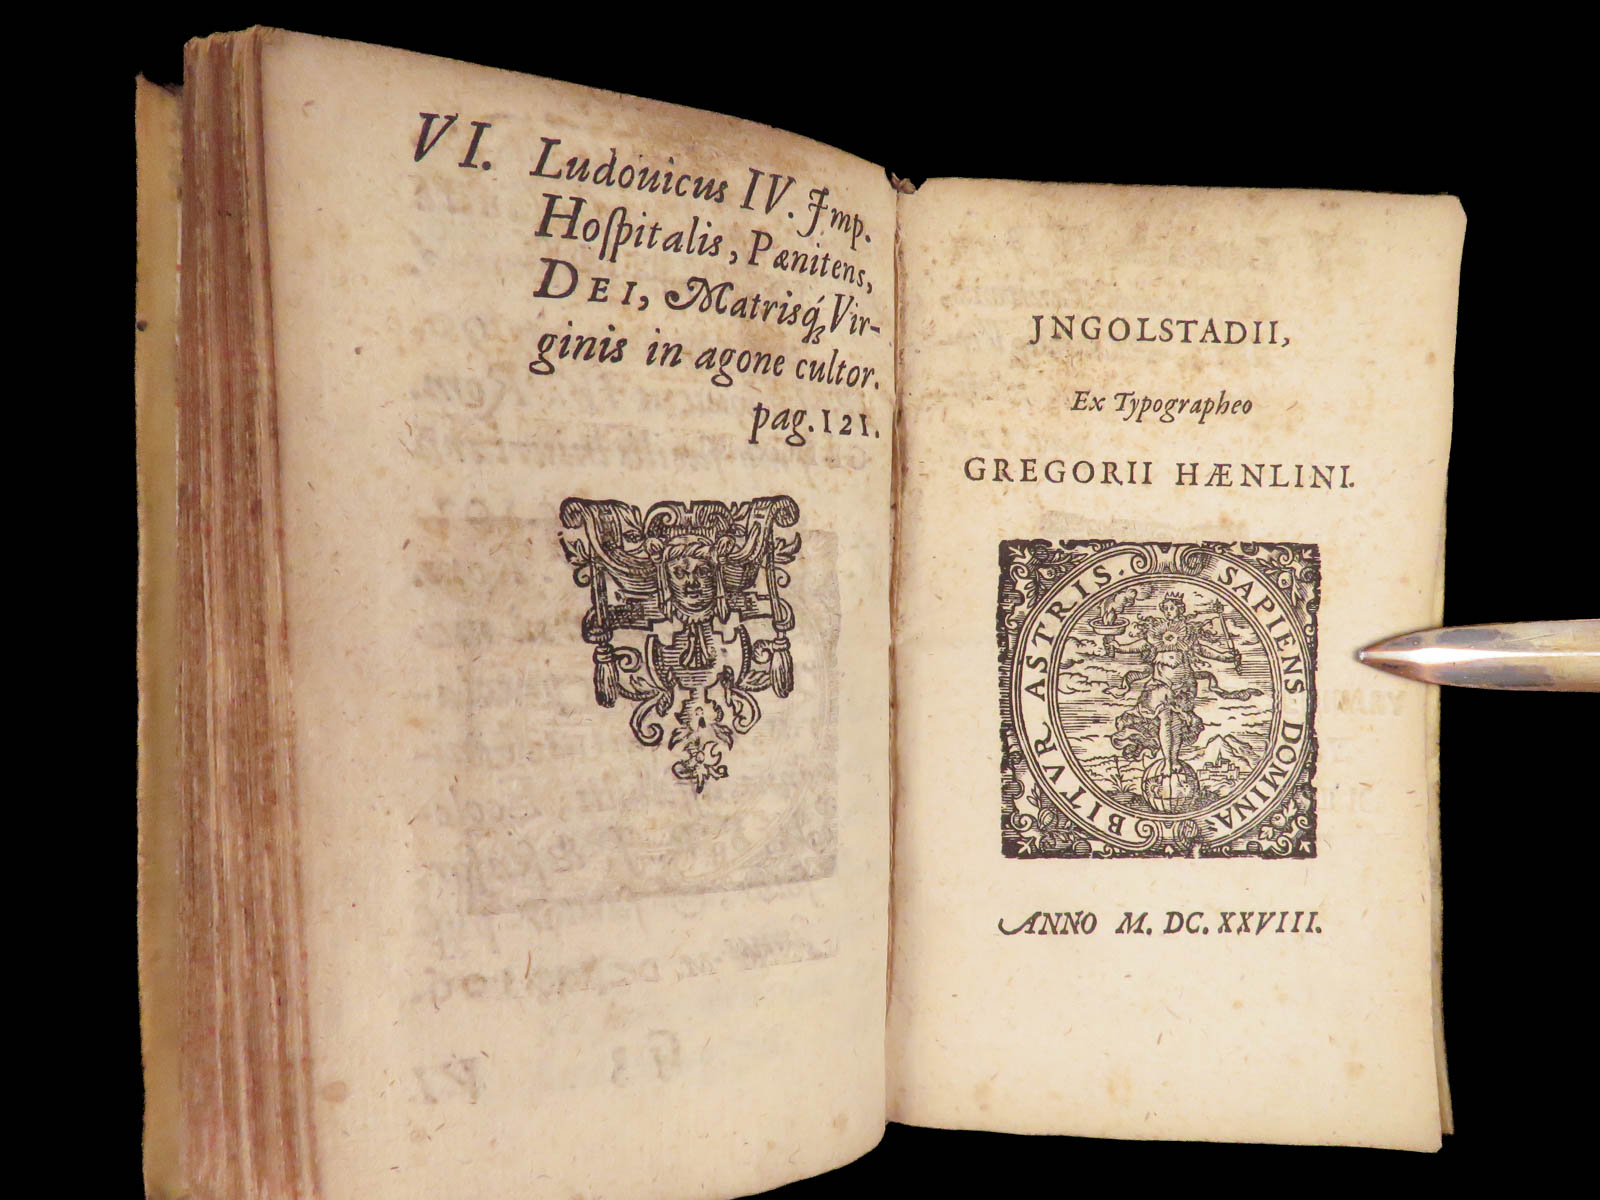 VI. Ludouicus IV. Jmp.
Hoſpitalis, Pænitens,
DEI, Matrisq́; Vir-
ginis in agone cultor.
pag. 121.
JNGOLSTADII,
Ex Typographeo
GREGORII HÆNLINI.
SAPIENS DOMINA-
BITVR ASTRIS.
ANNO M. DC. XXVIII.